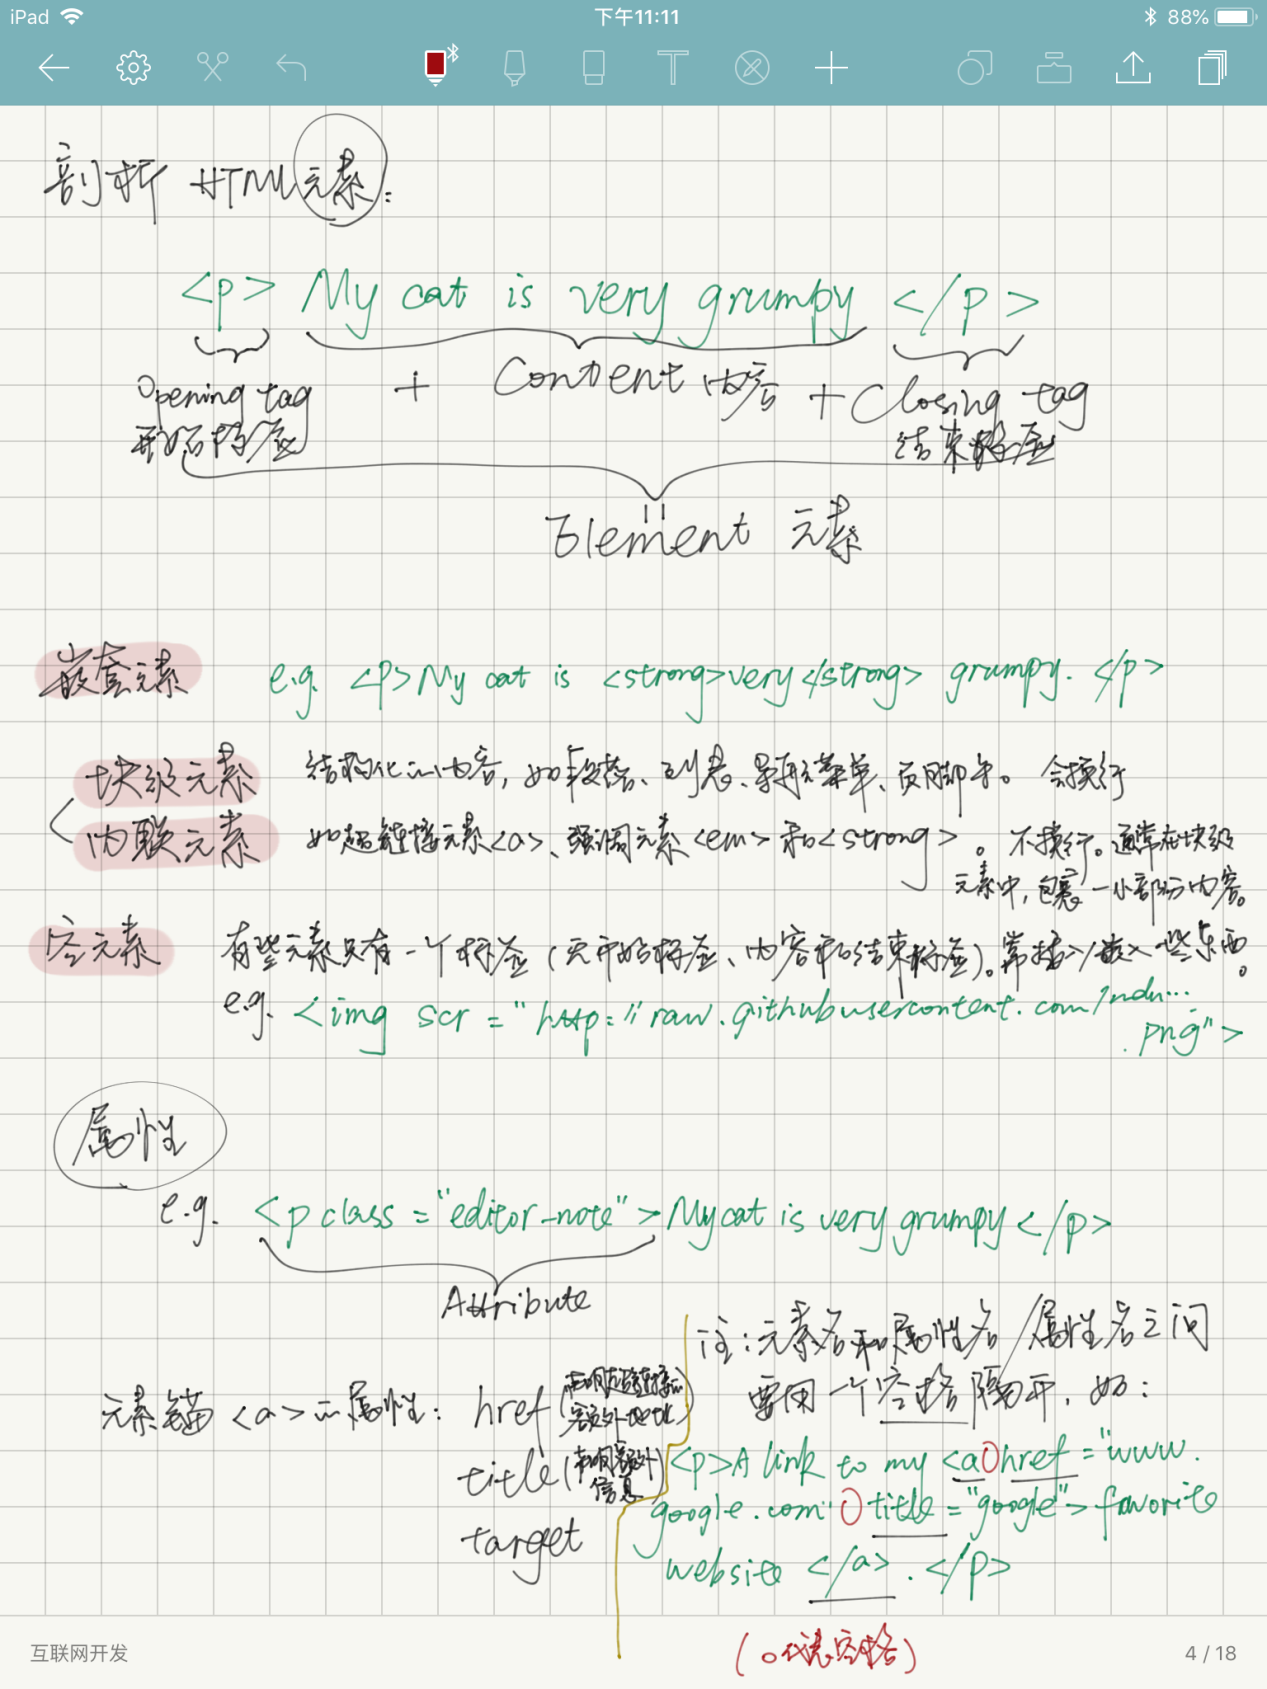 iPad 下午11:11 88%
剖析 HTML元素：
<p> My cat is very grumpy </p>
Opening tag + Content 内容 + Closing tag
开始标签 结束标签
Element 元素
嵌套元素 e.g. <p>My cat is <strong>very</strong> grumpy. </p>
块级元素 结构化的内容，如段落、列表、导航菜单、页脚等。会换行
内联元素 如超链接元素<a>、强调元素<em>和<strong>。不换行。通常在块级
元素中，包裹一小部分内容。
空元素 有些元素只有一个标签（无开始标签、内容和结束标签）。常插入/嵌入一些东西。
e.g. <img scr = "http://raw.githubusercontent.com/mdn...
.png">
属性
e.g. <p class = "editor-note">My cat is very grumpy</p>
Attribute
注：元素名和属性名/属性名之间
要用一个空格隔开，如：
元素锚<a>的属性： href (声明超链接的
额外地址)
title (声明额外
信息)
target
<p>A link to my <a href = "www.
google.com" title = "google">favorite
website </a>. </p>
(O代表空格)
互联网开发 4 / 18